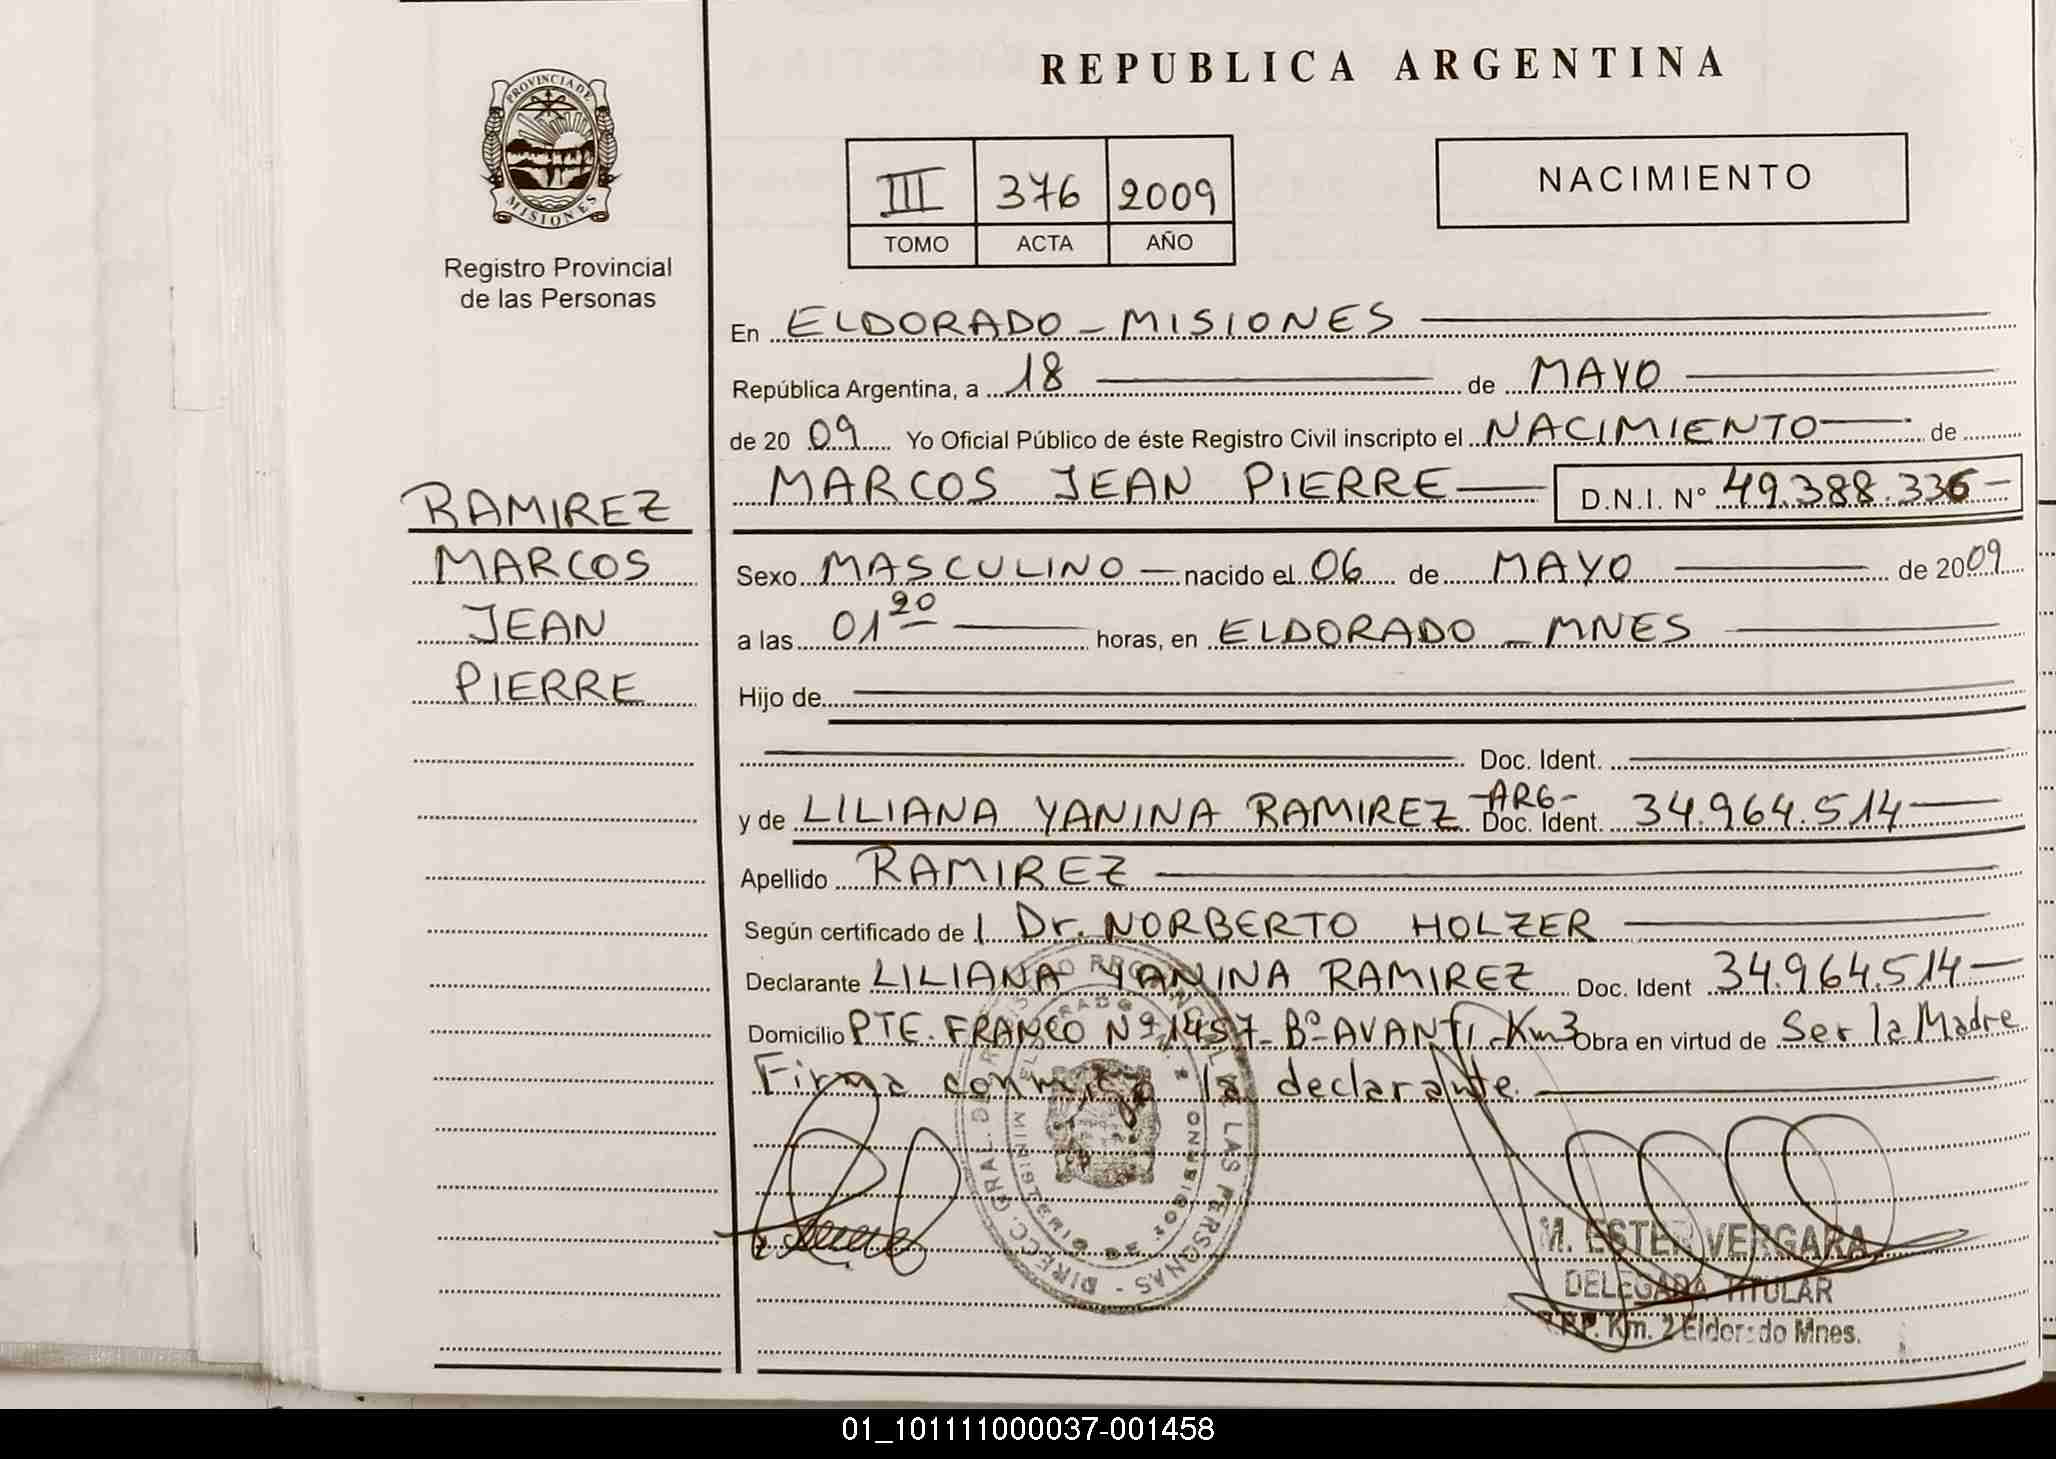 REPUBLICA ARGENTINA
PROVINCIA DE
MISIONES
Registro Provincial
de las Personas
III 376 2009
TOMO ACTA AÑO
NACIMIENTO
En ELDORADO - MISIONES
República Argentina, a 18 de MAYO
de 2009 Yo Oficial Público de éste Registro Civil inscripto el NACIMIENTO de
MARCOS JEAN PIERRE D.N.I. N° 49.388.336-
RAMIREZ
MARCOS
JEAN
PIERRE
Sexo MASCULINO - nacido el 06 de MAYO de 2009
a las 01 20 horas, en ELDORADO - MNES
Hijo de
Doc. Ident.
y de LILIANA YANINA RAMIREZ -ARG- Doc. Ident. 34.964.514
Apellido RAMIREZ
Según certificado de l Dr. NORBERTO HOLZER
Declarante LILIANA YANINA RAMIREZ Doc. Ident 34.964.514
Domicilio PTE. FRANCO Nº 1457- Bº AVANTI - Km3 Obra en virtud de Ser la Madre
Firma conmigo la declarante.
DIRECC. GRAL. DE LAS PERSONAS
MINISTERIO DE GOBIERNO
M. ESTER VERGARA
DELEGADA TITULAR
Km. 2 Eldorado Mnes.
01_101111000037-001458